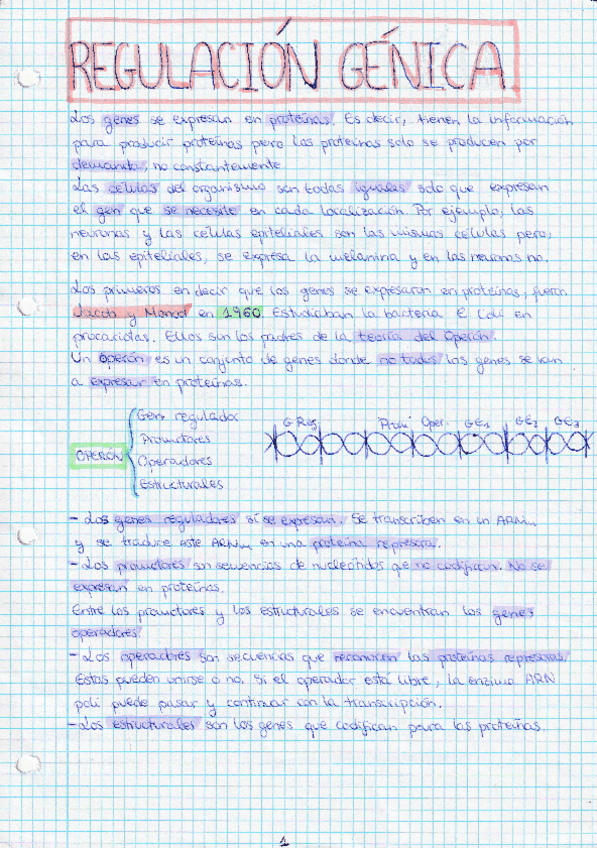 REGULACIÓN GÉNICA
Los genes se expresan en proteínas. Es decir, tienen la información
para producir proteínas pero las proteínas solo se producen por
demanda, no constantemente.
Las células del organismo son todas iguales solo que expresan
el gen que se necesite en cada localización. Por ejemplo, las
neuronas y las células epiteliales son las mismas células pero,
en las epiteliales, se expresa la melanina y en las neuronas no.
Los primeros en decir que los genes se expresaran en proteínas, fueron
Jacob y Monod en 1960. Estudiaban la bacteria E. Coli en
procariotas. Ellos son los padres de la teoría del Operón.
Un Operón es un conjunto de genes donde no todos los genes se van
a expresar en proteínas.
OPERÓN
Gen regulador
Promotores
Operadores
Estructurales
G Reg Prom Oper. GE1 GE2 GE3
- Los genes reguladores sí se expresan. Se transcriben en un ARNm
y se traduce este ARNm en una proteína represora.
- Los promotores son secuencias de nucleótidos que no codifican. No se
expresan en proteínas.
Entre los promotores y los estructurales se encuentran los genes
operadores.
- Los operadores son secuencias que reconocen las proteínas represoras.
Estas pueden unirse o no. Si el operador está libre, la enzima ARN
poli puede pasar y continuar con la transcripción.
- Los estructurales son los genes que codifican para las proteínas.
1